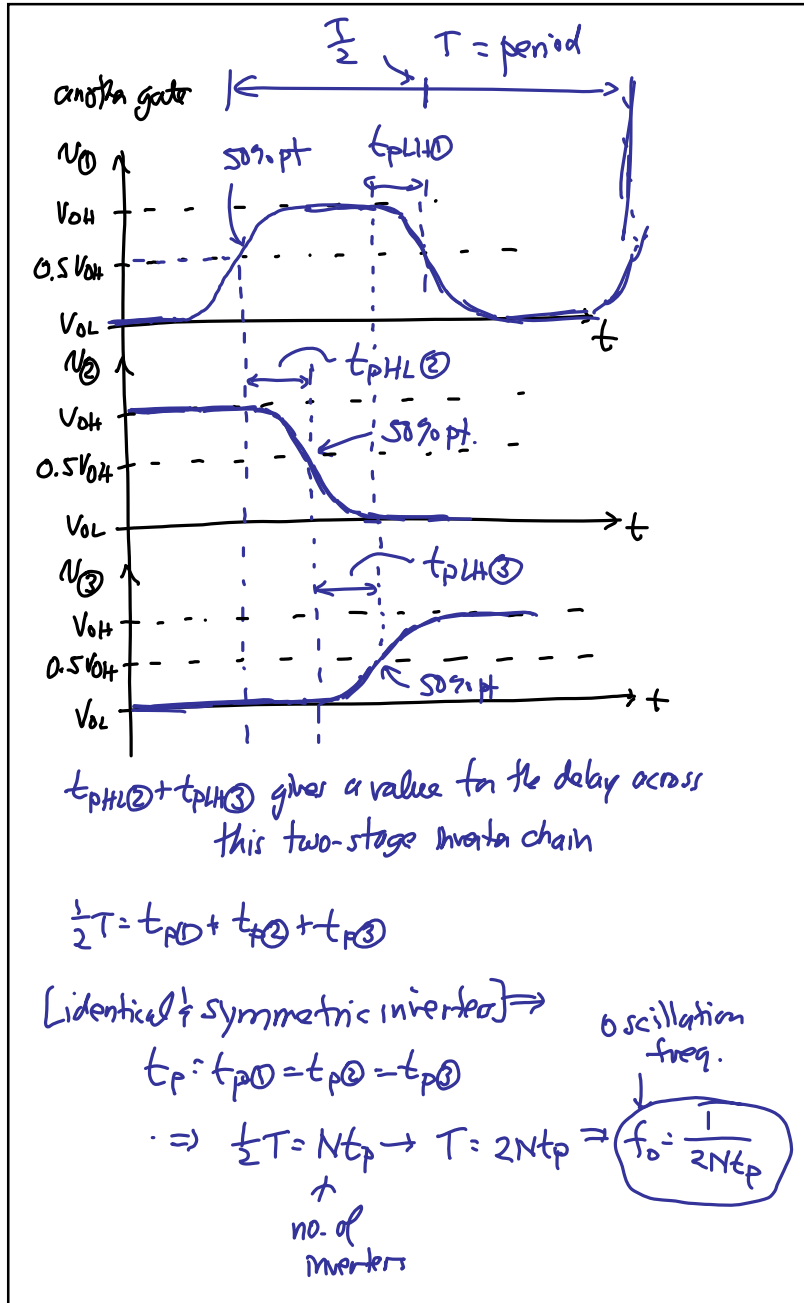 T/2 T = period
another gate
50% pt tpLH①
v①
VOH
0.5VOH
VOL
t
v②
tpHL②
VOH
50% pt.
0.5VOH
VOL
t
v③
tpLH③
VOH
0.5VOH
50% pt
VOL
t
tpHL② + tpLH③ gives a value for the delay across
this two-stage inverter chain
1/2 T = tp① + tp② + tp③
[identical & symmetric inverters] ⇒
oscillation
freq.
tp = tp① = tp② = tp③
⇒ 1/2 T = Ntp → T = 2Ntp ⇒ fo = 1/2Ntp
no. of
inverters